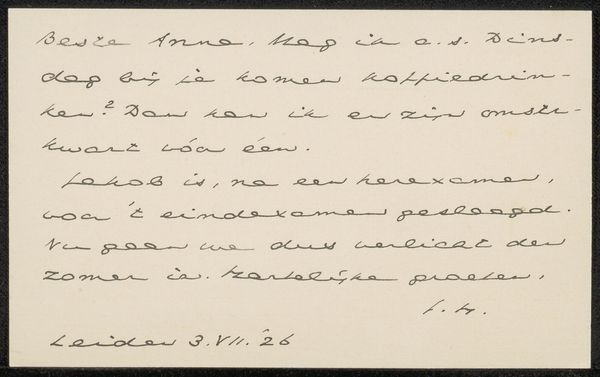 Beste Anna, Mag ik a.s. Dins-
dag bij je komen koffiedrin-
ken? Dan kan ik er zijn omstr.
kwart vóór één.
Jakob is, na een herexamen,
voor 't eindexamen geslaagd.
Nu gaan we dus verlicht den
zomer in. Hartelijke groeten,
J. H.
Leiden 3.VII.'26